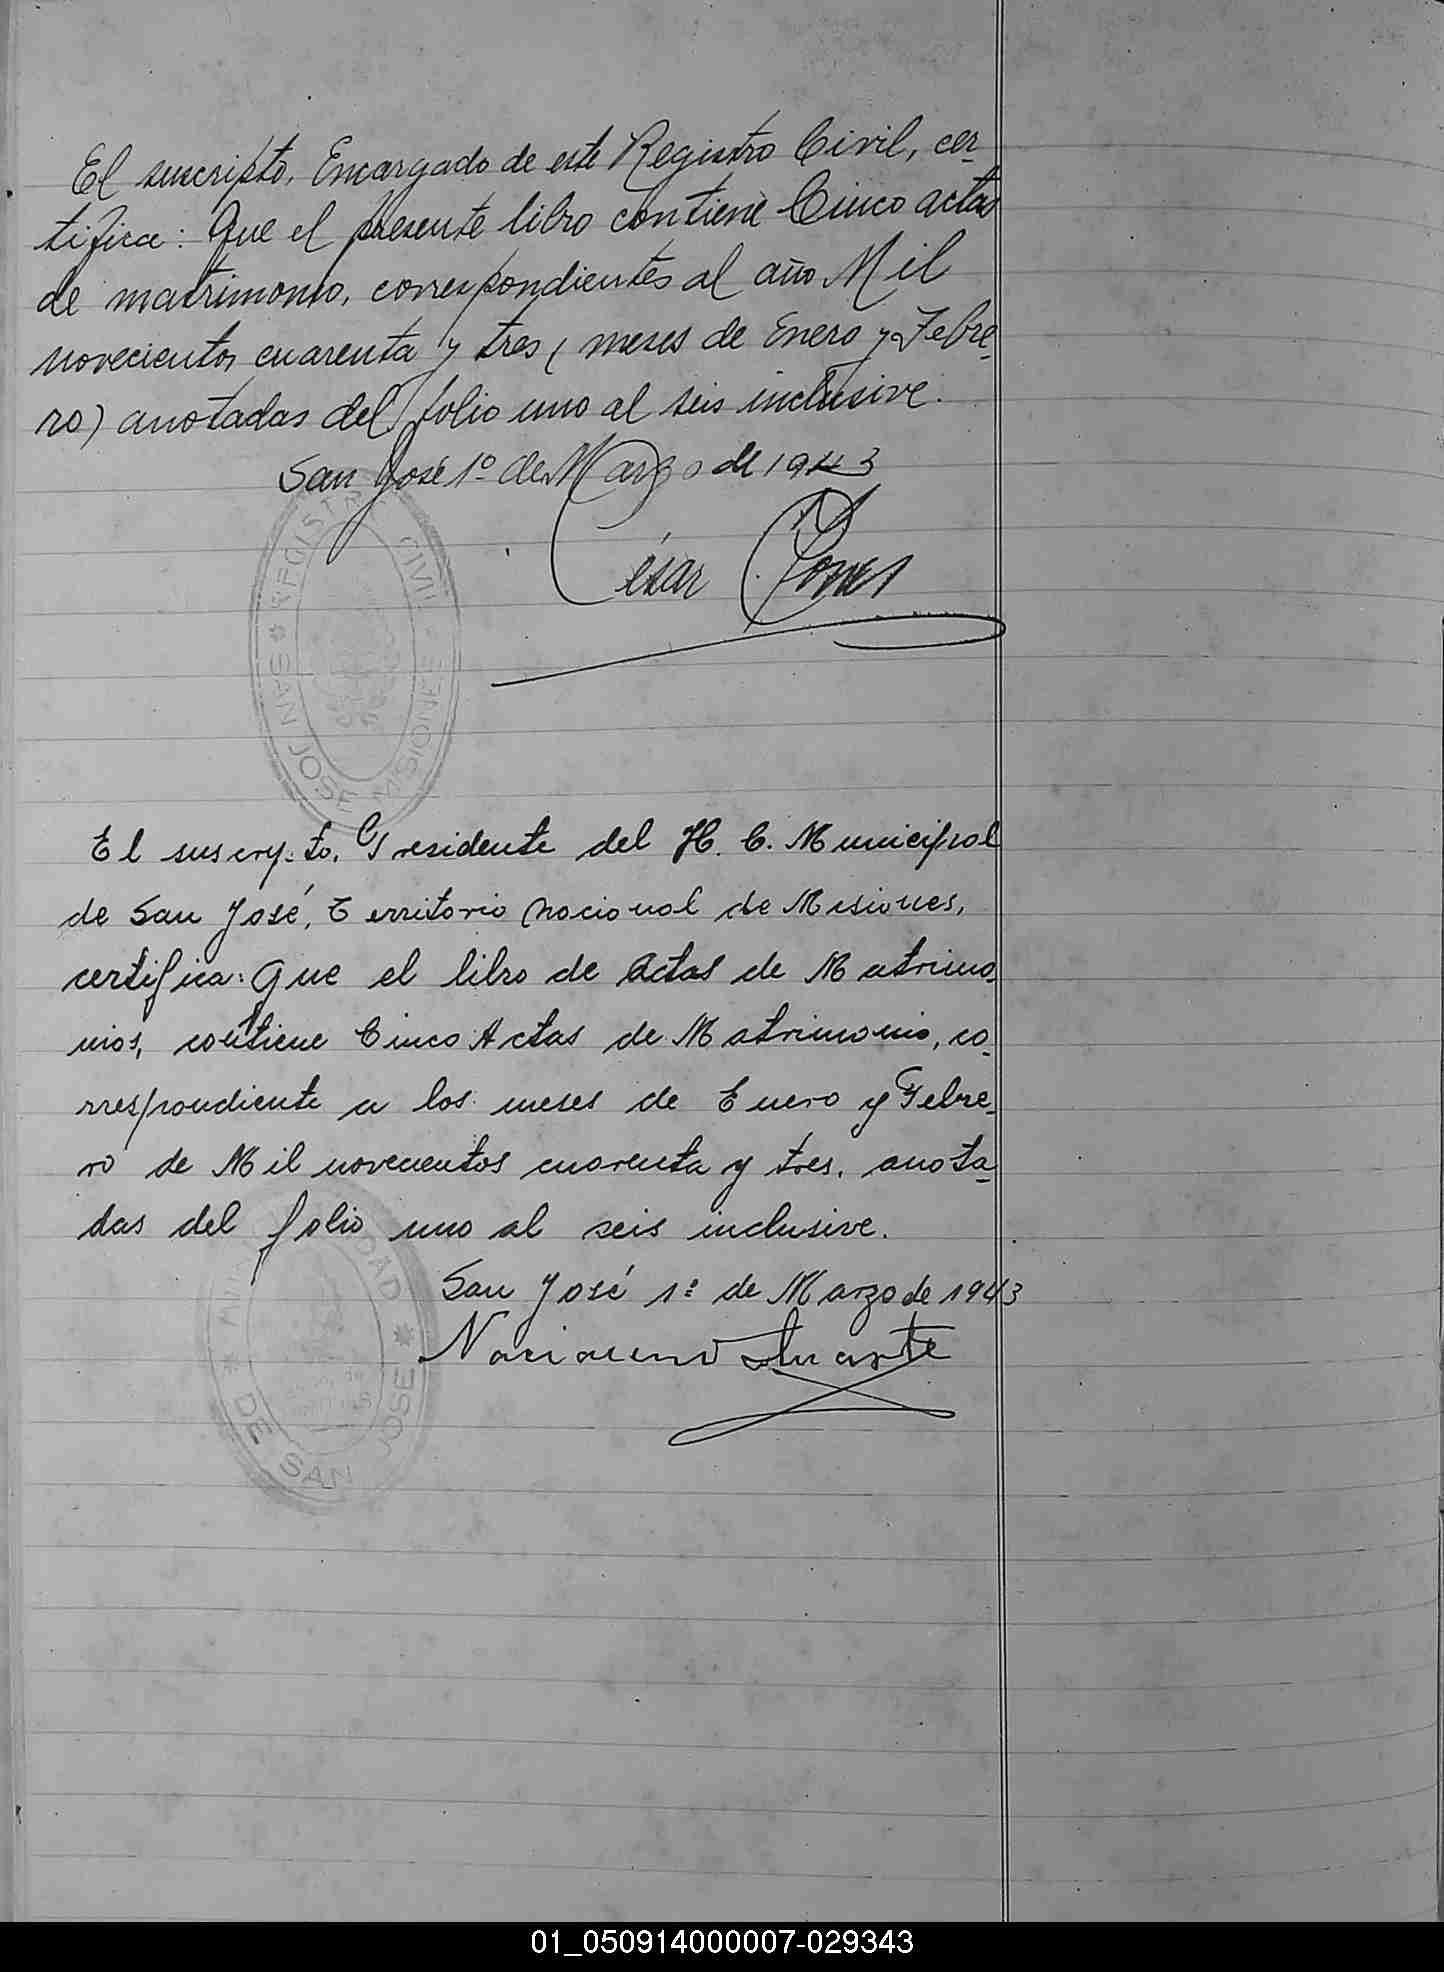 El suscripto, Encargado de este Registro Civil, cer-
tifica: Que el presente libro contiene Cinco actas
de matrimonio, correspondientes al año Mil
novecientos cuarenta y tres (meses de Enero y Febre-
ro) anotadas del folio uno al seis inclusive.
San José 1º de Marzo de 1943
César
REGISTRO CIVIL
SAN JOSE MISIONES
El suscrypto, Presidente del H. C. Municipal
de San José, Territorio Nacional de Misiones,
certifica: Que el libro de Actas de Matrimo
nios, contiene Cinco Actas de Matrimonio, co-
rrespondiente a los meses de Enero y Febre-
ro de Mil novecientos cuarenta y tres, anota-
das del folio uno al seis inclusive.
San José 1º de Marzo de 1943
Duarte
MUNICIPALIDAD
DE SAN JOSE
01_050914000007-029343